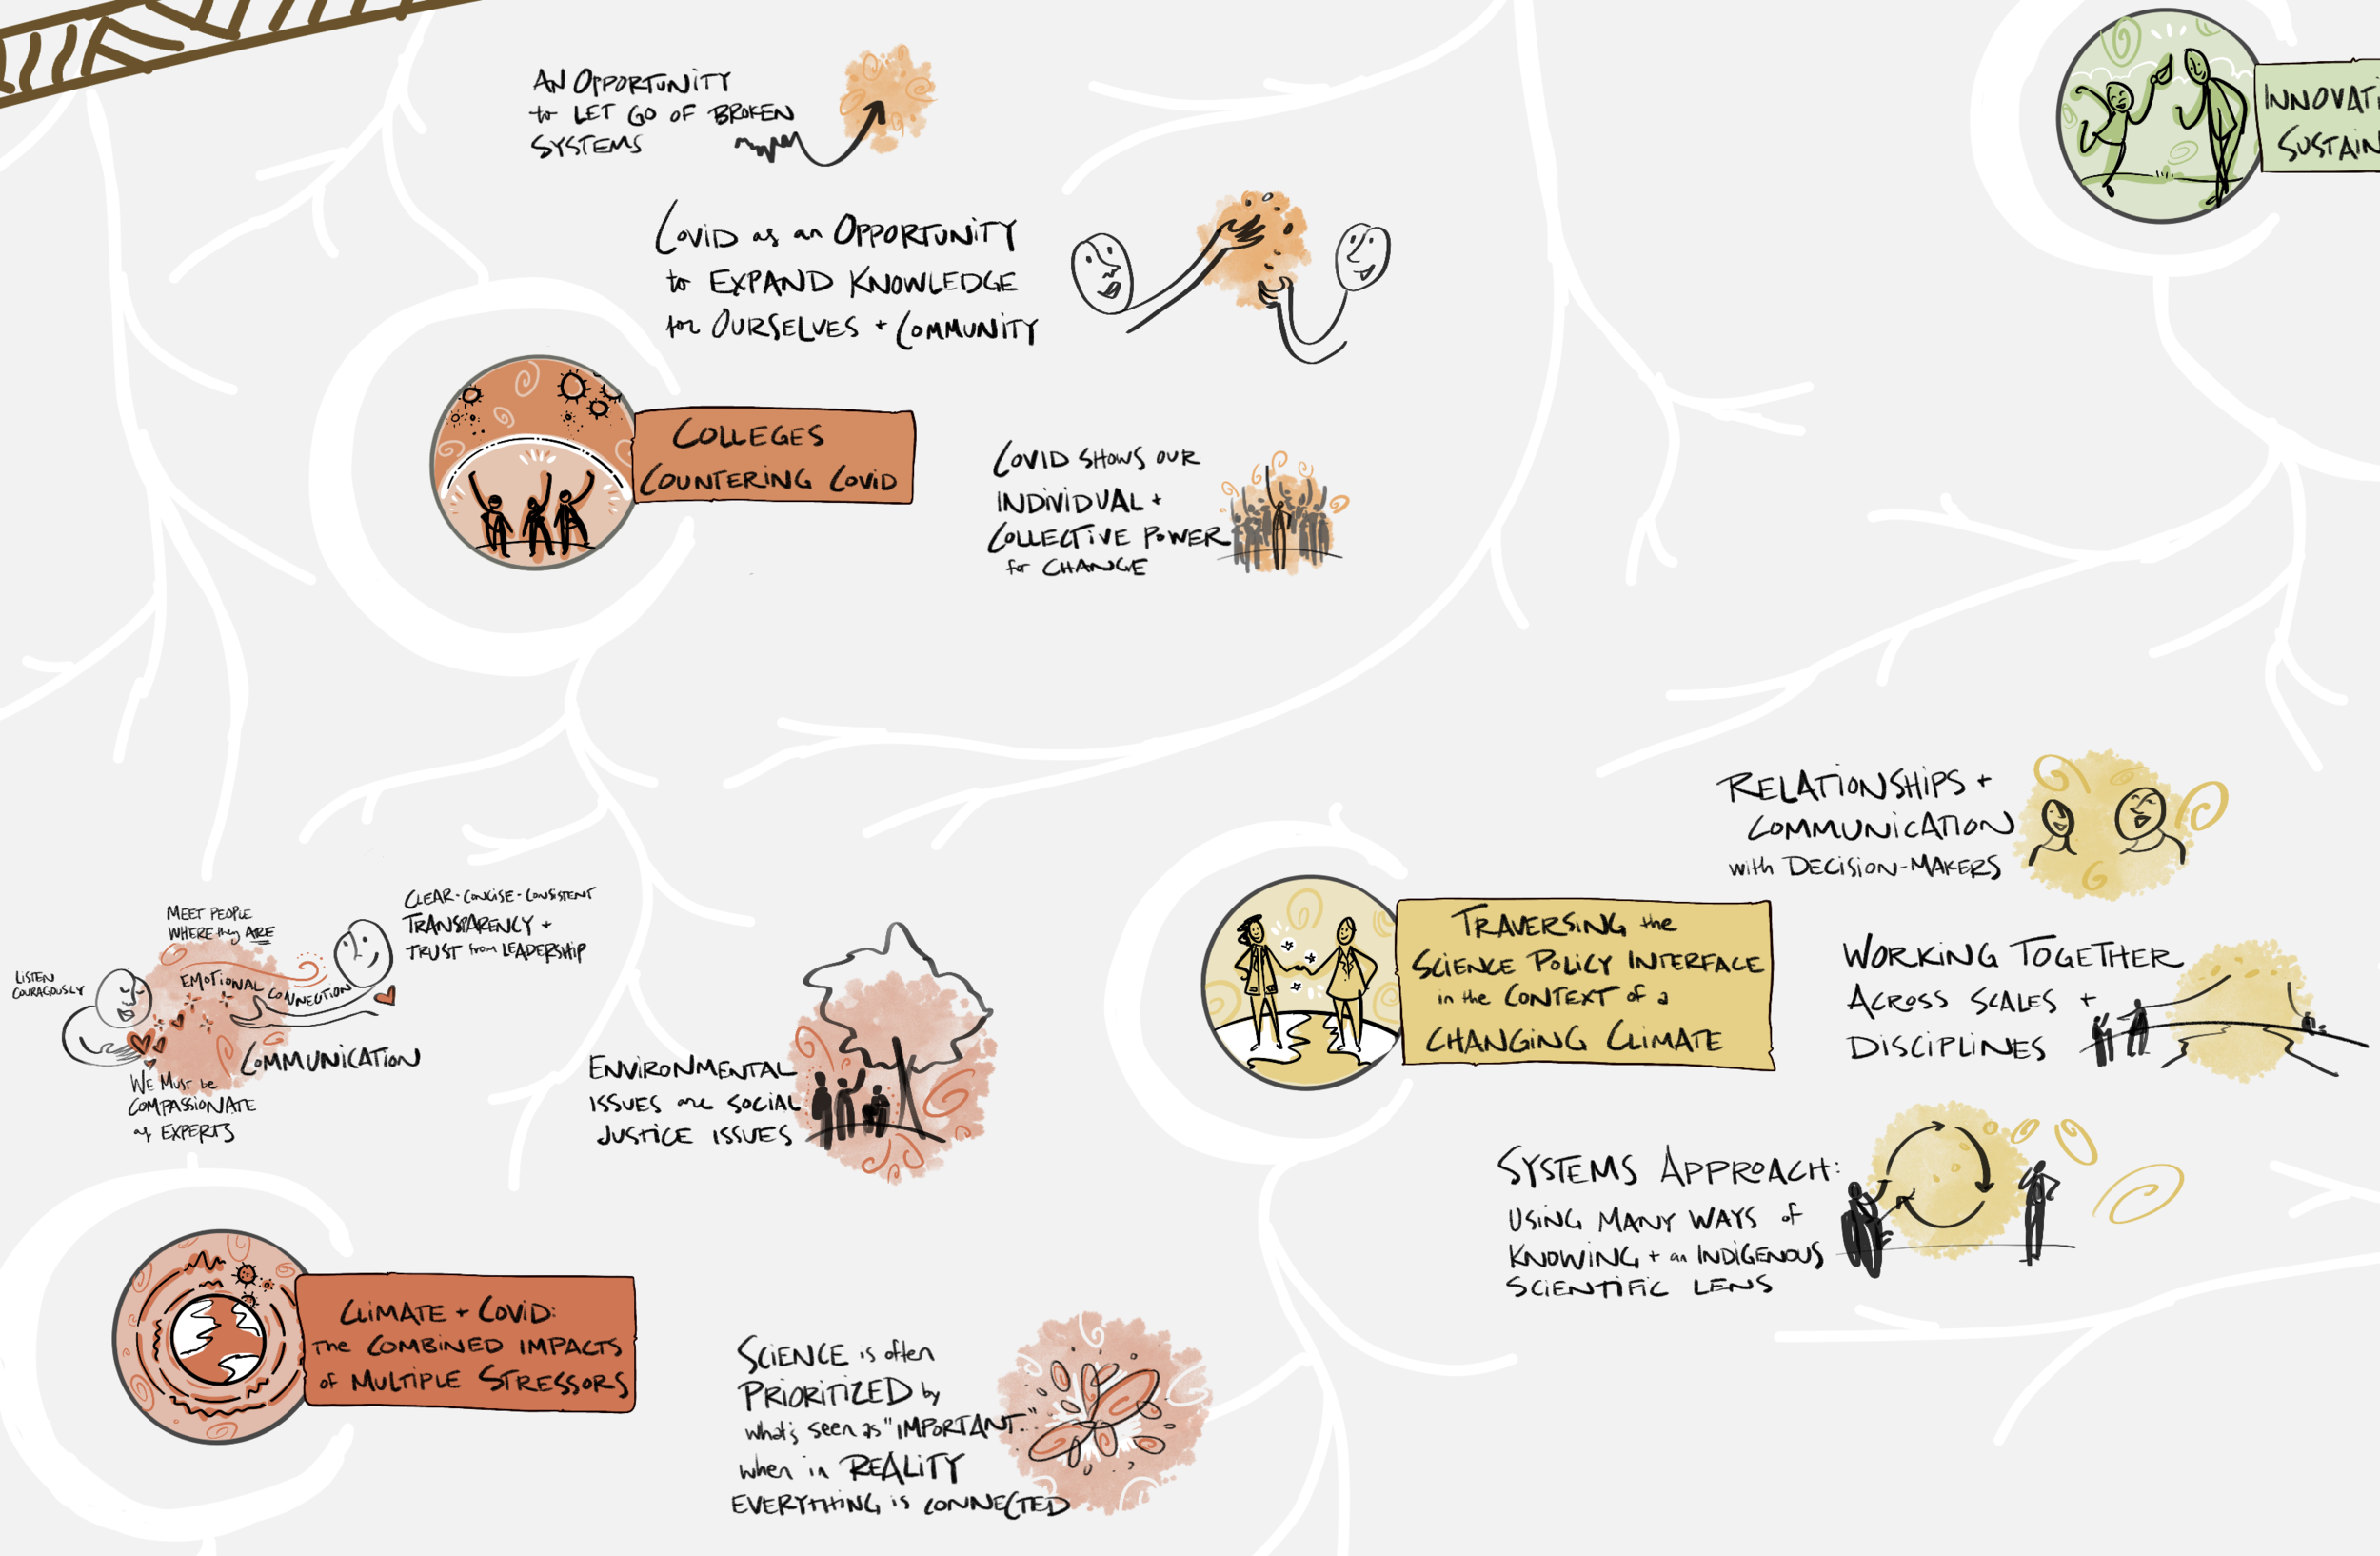 AN OPPORTUNITY
to LET GO OF BROKEN
SYSTEMS
COVID as an OPPORTUNITY
to EXPAND KNOWLEDGE
for OURSELVES + COMMUNITY
COLLEGES
COUNTERING COVID
COVID SHOWS OUR
INDIVIDUAL +
COLLECTIVE POWER
for CHANGE
INNOVATI
SUSTAIN
MEET PEOPLE
WHERE they ARE
CLEAR - CONCISE - CONSISTENT
TRANSPARENCY +
TRUST from LEADERSHIP
LISTEN
COURAGOUSLY
EMOTIONAL CONNECTION
COMMUNICATION
WE MUST be
COMPASSIONATE
as EXPERTS
ENVIRONMENTAL
ISSUES are SOCIAL
JUSTICE ISSUES
CLIMATE + COVID:
The COMBINED IMPACTS
of MULTIPLE STRESSORS
SCIENCE is often
PRIORITIZED by
what's seen as "IMPORTANT..."
when in REALITY
EVERYTHING is CONNECTED
TRAVERSING the
SCIENCE POLICY INTERFACE
in the CONTEXT of a
CHANGING CLIMATE
RELATIONSHIPS +
COMMUNICATION
with DECISION-MAKERS
WORKING TOGETHER
ACROSS SCALES +
DISCIPLINES
SYSTEMS APPROACH:
USING MANY WAYS of
KNOWING + an INDIGENOUS
SCIENTIFIC LENS